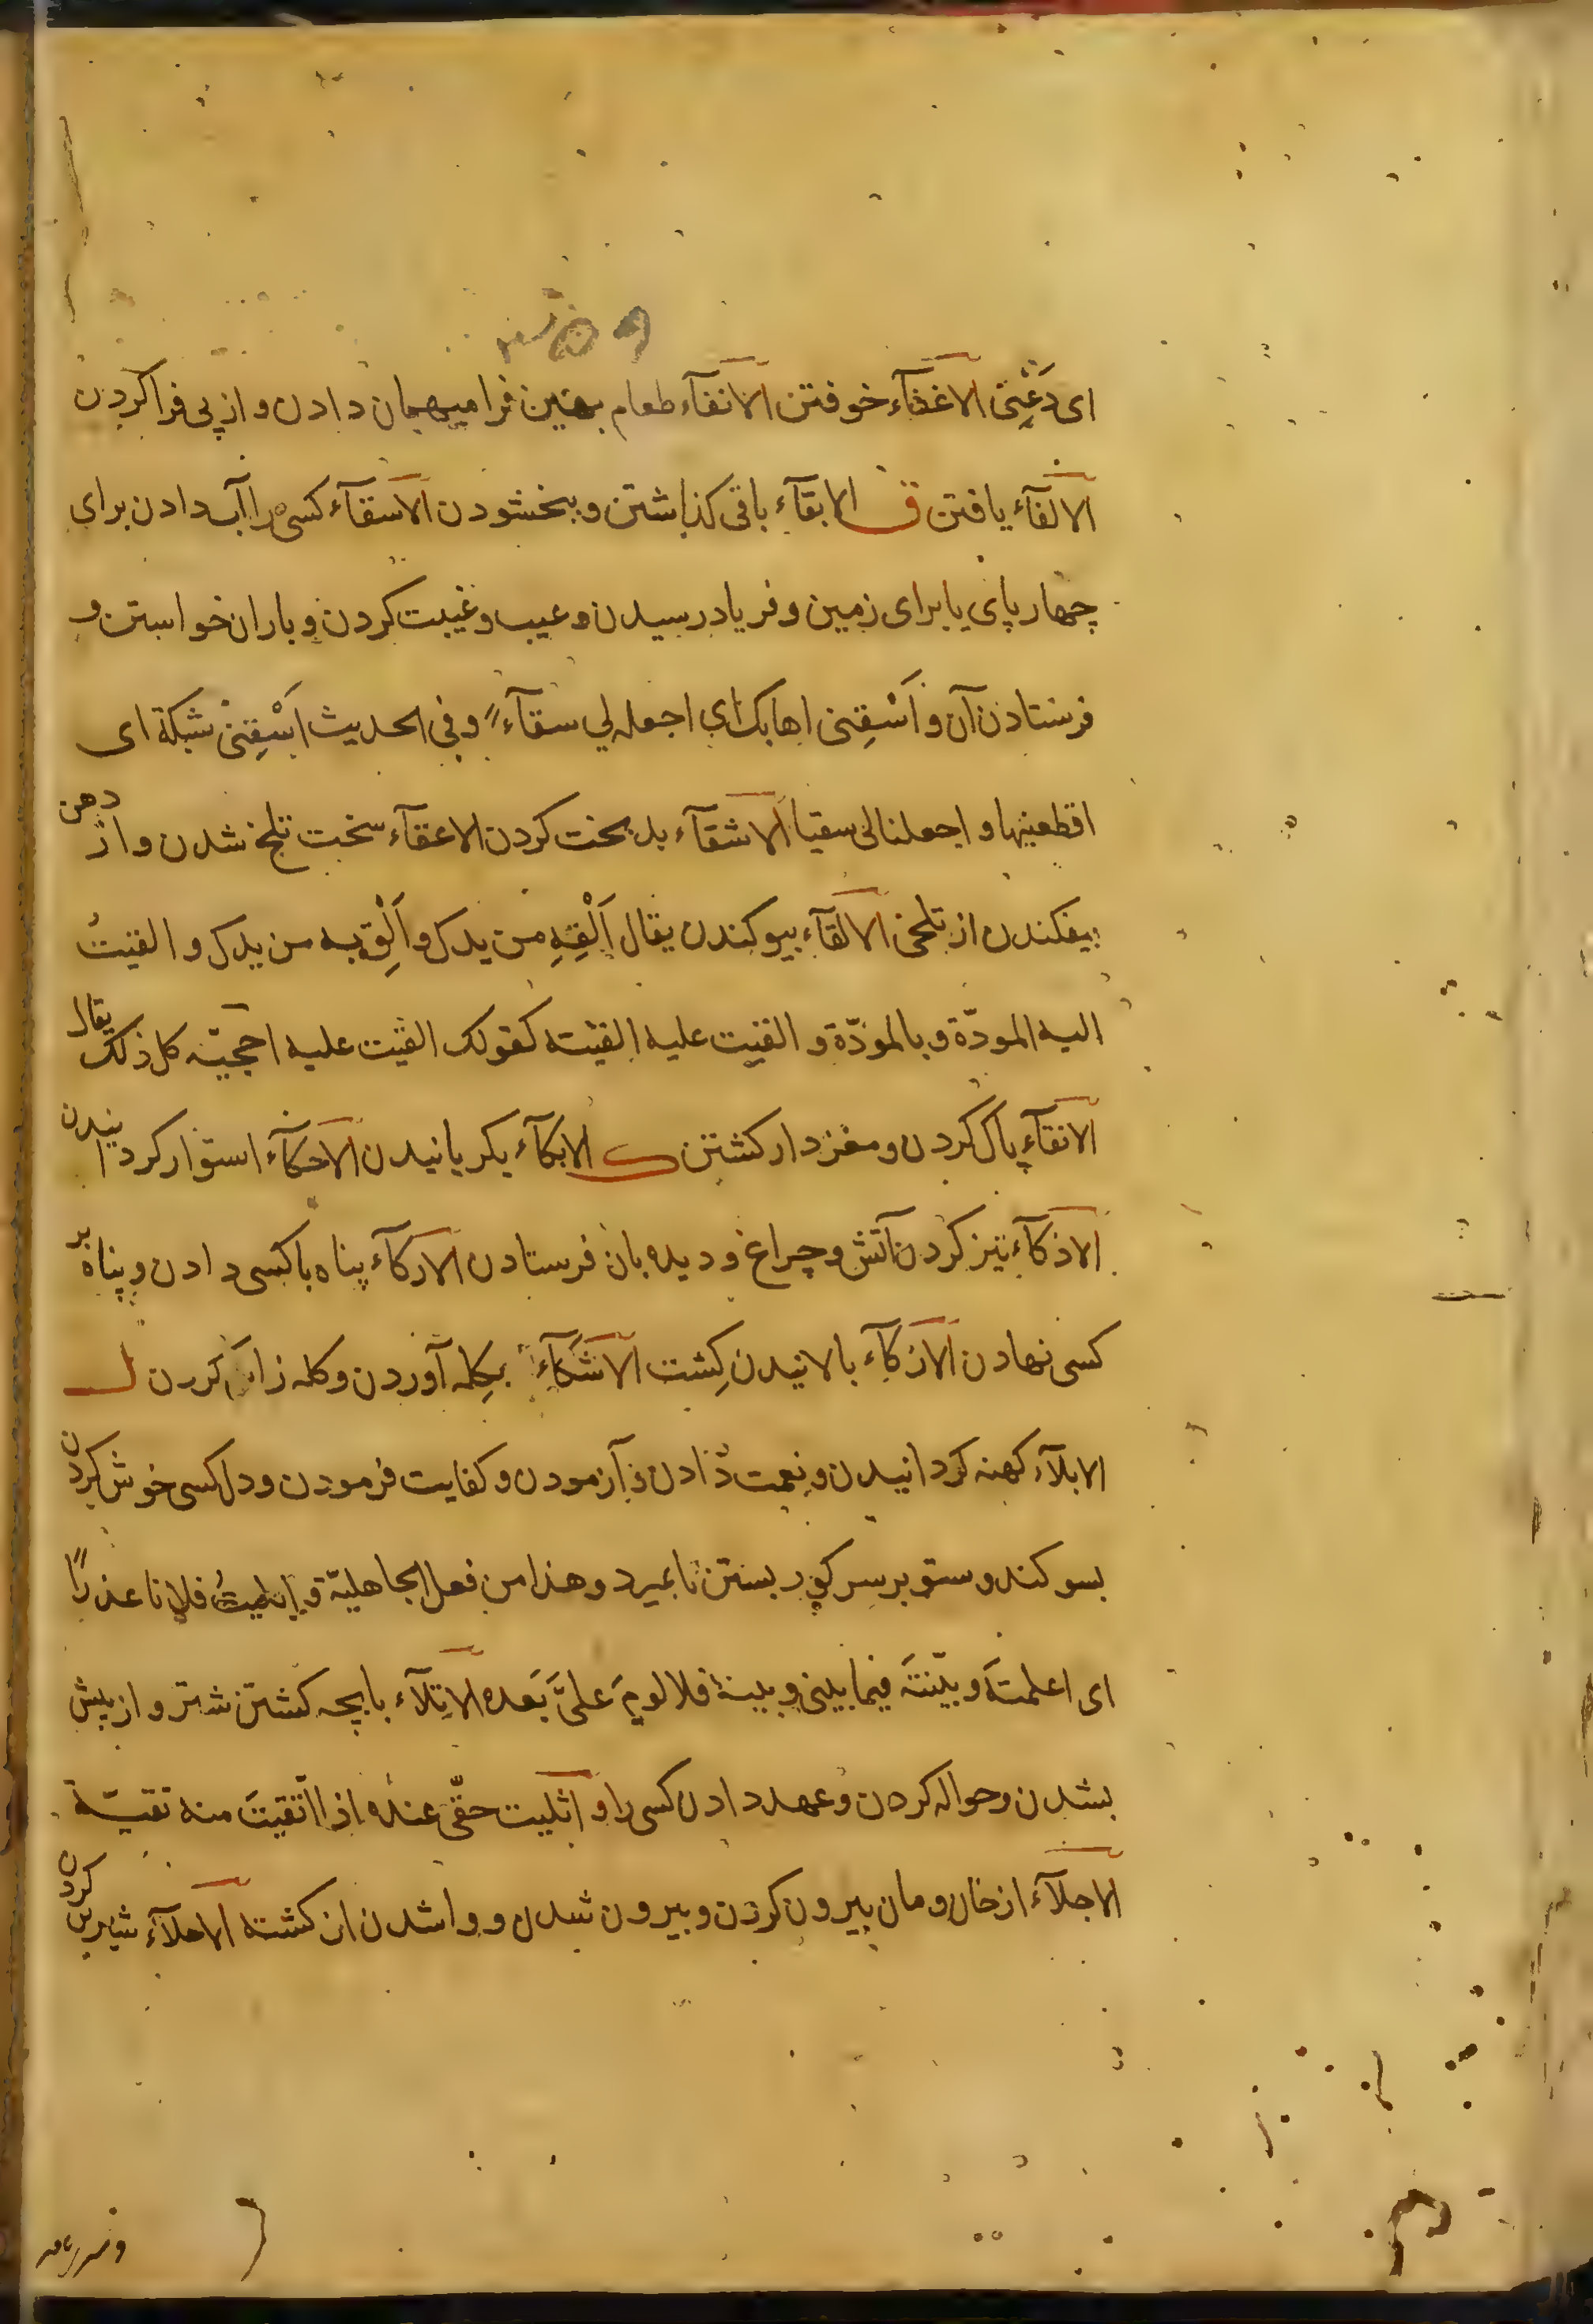 وقف
ای دَعْنِی الاغفآء خوفتن الانفآء طعام بهین فرا میهمان دادن و از پی فرا کردن
الالفآء یافتن ف الابقآء باقی کذاشتن و ببخشودن الاسقآء کسی را آب دادن برای
چهارپای یا برای زمین و فریاد رسیدن و عیب و غیبت کردن و باران خواستن و
فرستادن آن و اَسْقِنی اهابک ای اجعله لی سقآءً و فی الحدیث اَسْقِنِیْ شبکة ای
اقطعنیها و اجعلنا لی سقیا الاشقآء بدبخت کردن الاعقآء سخت تلخ شدن و از دهن
بیفکندن از تلخی الالقآء بیوکندن یقال اَلْقِهِ من یدک و اَلْقِ به من یدک و القیتُ
الیه المودّة و بالمودّة و القیت علیه القیته کقولک القیت علیه احجیّه کل ذلک یقال
الانقآء پاک کردن و مغزدار کشتن ک الابکآء بکریانیدن الاحکآء استوار کردانیدن
الاذکآء تیز کردن آتش و چراغ و دیده بان فرستادن الارکآء پناه با کسی دادن و پناه بر
کسی نهادن الازکآء بالانیدن کِشت الاشکآء بکِله آوردن و کله زایل کردن ل
الابلآء کهنه کردانیدن و نعمت دادن و آزمودن و کفایت فرمودن و دل کسی خوش کردن
بسوکند و ستور بر سر کور بستن تا بمیرد و هذا من فعل الجاهلیّة و ابلیتُ فلانا عذراً
ای اعلمته و بیّنته فیما بینی و بینه فلا لومَ علیَّ بَعده الاتلآء بابچه کشتن شتر و از پیش
بشدن و حواله کردن و عهد دادن کسی را و اتلیت حقّی عنده اذا اتّقیتَ منه تقیّة
الاجلآء از خان و مان بیرون کردن و بیرون شدن و واشدن از کشته الاحلآء شیرین کردن